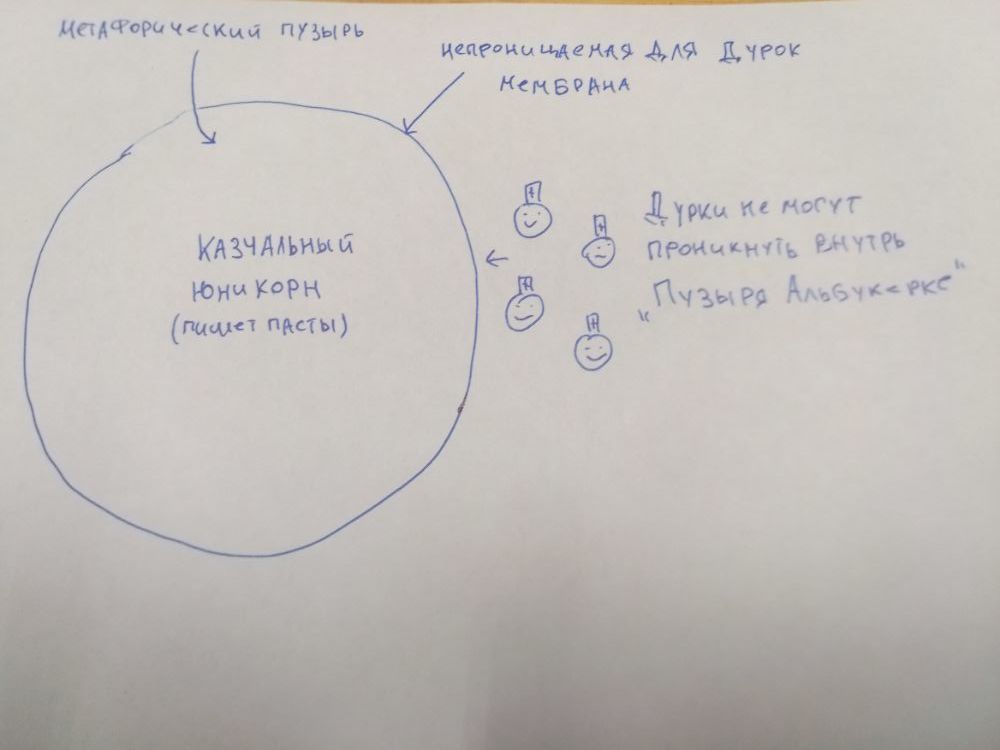 метафорический пузырь
непроницаемая для Дурок
мембрана
Казуальный
юникорн
(пишет пасты)
Дурки не могут
проникнуть внутрь
„Пузыря Альбукерке"